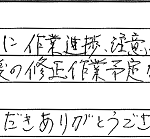 に作業進捗、注意
後の修正作業予定
だきありがとうござ